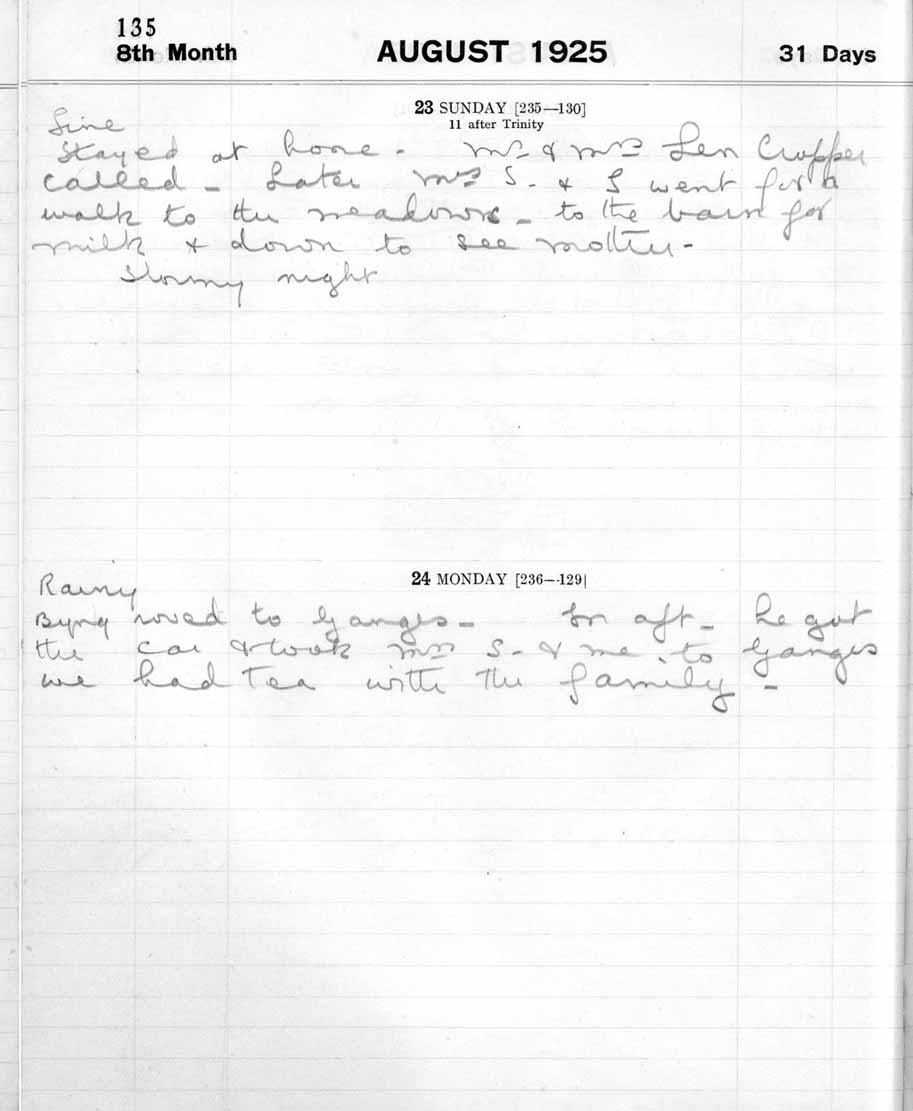 135
8th Month AUGUST 1925 31 Days
23 SUNDAY [235—130]
11 after Trinity
Fine
Stayed at home - Mr & Mrs Len Cropper
called - Later Mrs S. & I went for a
walk to the meadows - to the barn for
milk & down to see mother -
Stormy night
24 MONDAY [236—129]
Rainy
Byng rowed to Ganges - In aft - he got
the car & took Mrs S. & me to Ganges
we had tea with the family -